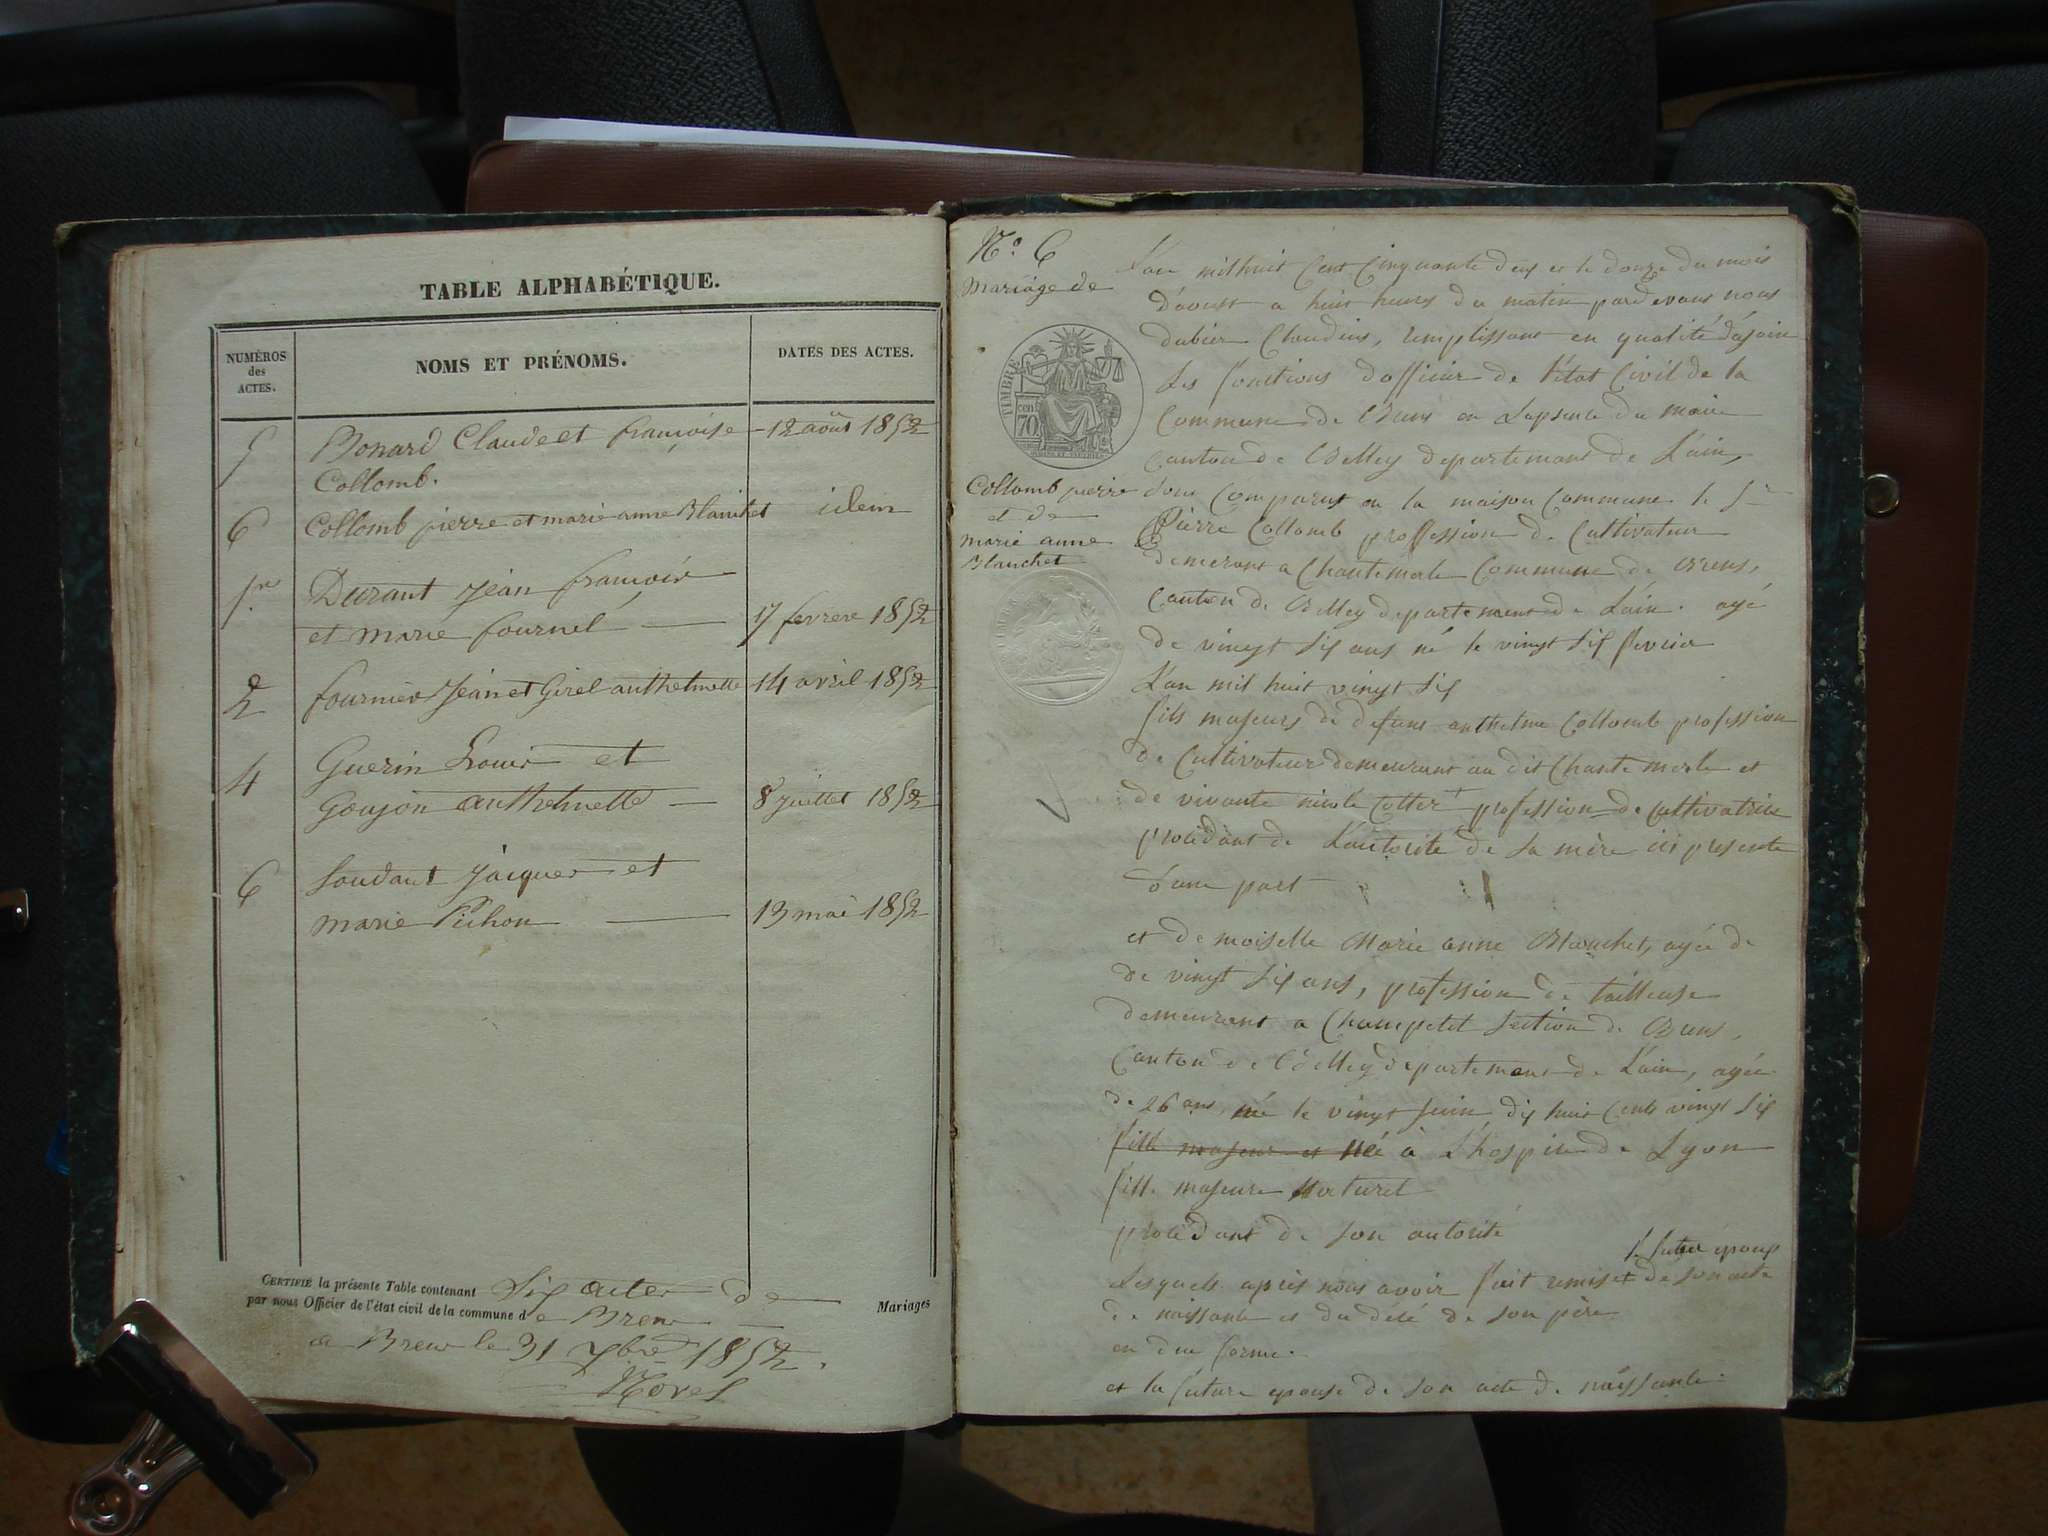 TABLE ALPHABÉTIQUE.
NUMÉROS
des
ACTES.
NOMS ET PRÉNOMS.
DATES DES ACTES.
5 Bonard Claude et françoise 12 août 1852
Collomb.
6 Collomb pierre et marie anne Blanchet idem
1er Durant Jean françois
et marie fournel 17 fevrere 1852
2 fournier Jean et Girel anthelmette 14 avril 1852
4 Guerin Louis et
Goujon anthelmette 8 juillet 1852
6 Soudant Jacques et
marie Pichon 13 mai 1852
CERTIFIÉ la présente Table contenant Six actes de Mariages
par nous Officier de l'état civil de la commune de Brens
a Brens le 31 xbre 1852.
Morel
N° 6
mariage de
TIMBRE
cen
70
Collomb pierre
et de
marie anne
Blanchet
L'an mil huit Cent Cinquante deux et le douze du mois
D'aoust a huit heures du matin pardevant nous
Claudius, remplissant en qualité d'ajoin
Les fonctions d'officier de l'état Civil de la
Commune de Brens en L'apsence du maire
Canton de Belley departement de L'ain,
Sont Comparus en la maison Commune le Sr
Pierre Collomb proffession de Cultivateur
demerant a Chantemerle Commune de Brens,
Canton de Belley departement de L'ain. agé
de vingt Six ans né le vingt Six fevrier
L'an mil huit vingt Six
fils majeurs de defunt anthelme Collomb profession
de Cultivateur demeurant au dit Chantemerle et
de vivante nicole profession de Cultivatrice
procédant de L'autorité de sa mère ici presente
d'une part
et demoiselle Marie anne Blanchet, agée de
de vingt Six ans, profession de tailleuse
demeurant a Champetel Section de Brens,
Canton de Belley departement de L'ain, agée
de 26 ans, née le vingt Juin dix huit Cent vingt Six
fille majeur et née à L'hospice de Lyon
fille majeure Naturel
procédant de son autorité
Lesquels après nous avoir fait remise le futur epoux de son acte
de naissance et du décé de son père
en due forme.
et la future epouse de son acte de naissance.